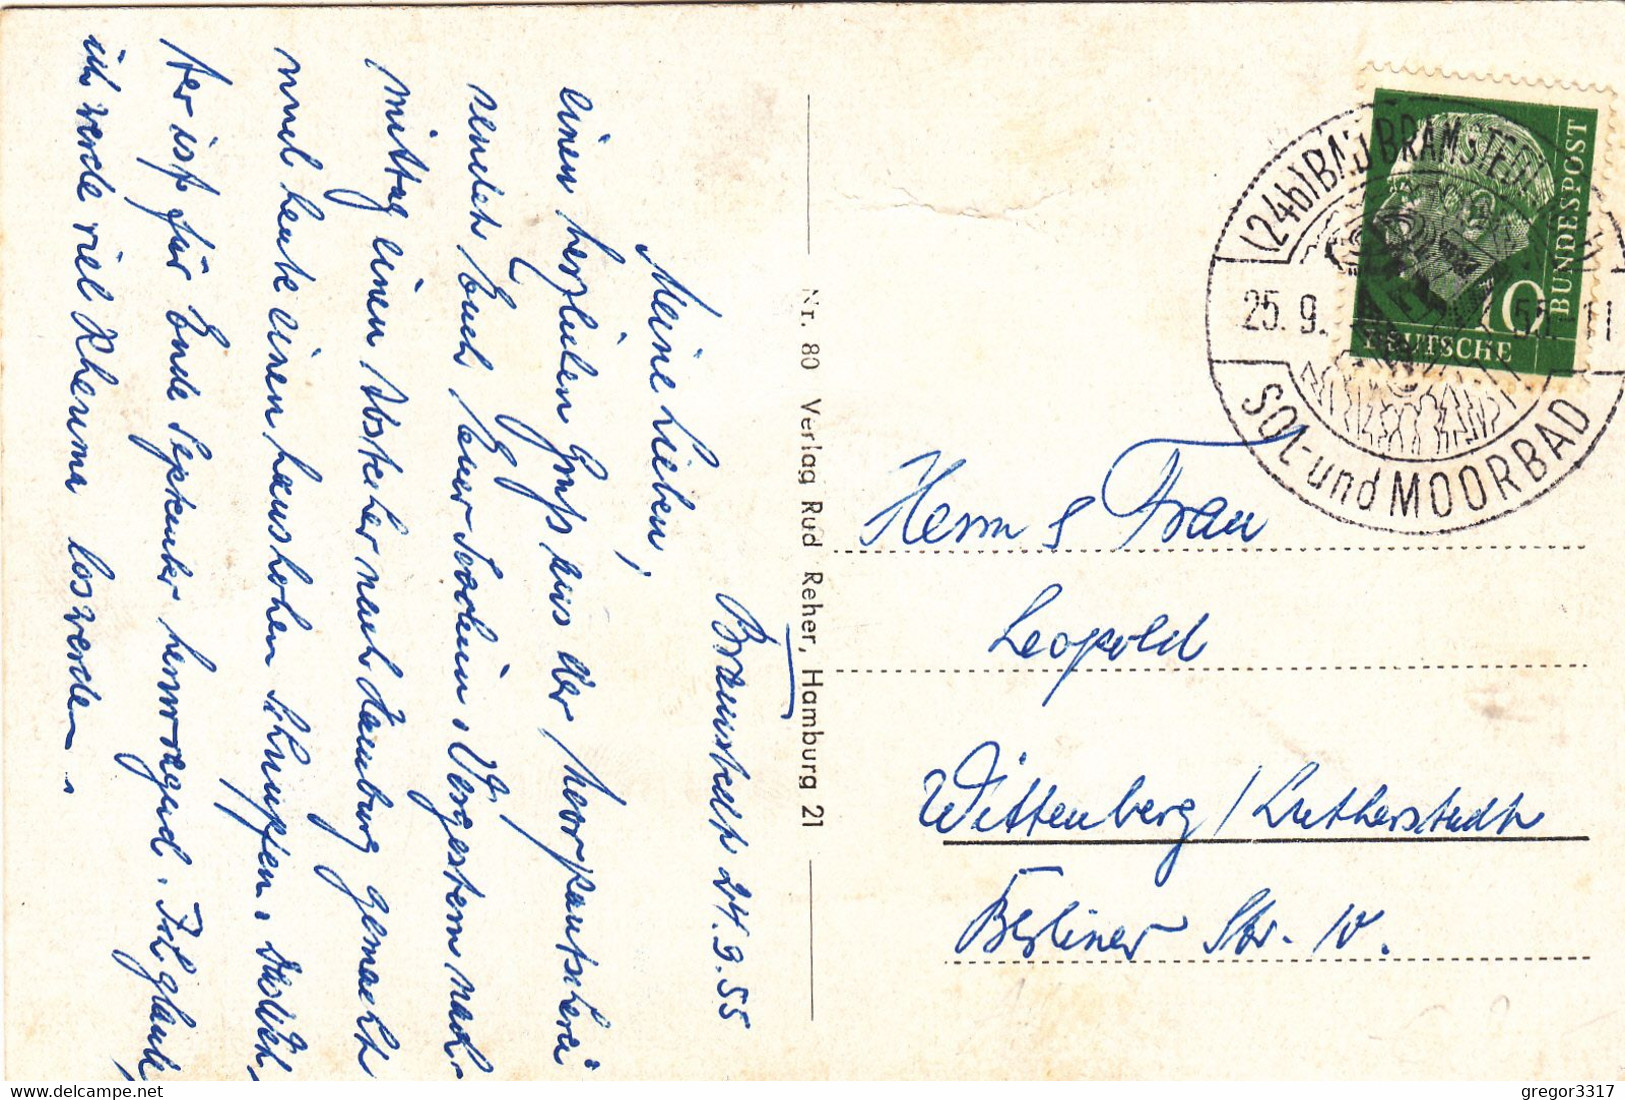 Bramstedt 24.9.55
Meine Lieben,
einen herzlichen Gruß aus der Moorpantscherei
sendet Euch Euer Joachim. Vorgestern nach-
mittag einen Abstecher nach Hamburg gemacht
und heute einen haushohen Schnupfen. Das Wet-
ter ist für Ende September hervorragend. Ich glaube,
ich werde viel Rheuma loswerden.
Nr. 80 Verlag Rud Reher, Hamburg 21
(24b) BAD BRAMSTEDT
25. 9. 55-11
SOL- und MOORBAD
DEUTSCHE
BUNDESPOST
10
Herrn & Frau
Leopold
Wittenberg/Lutherstadt
Berliner Str. 10.
www.delcampe.net
gregor3317